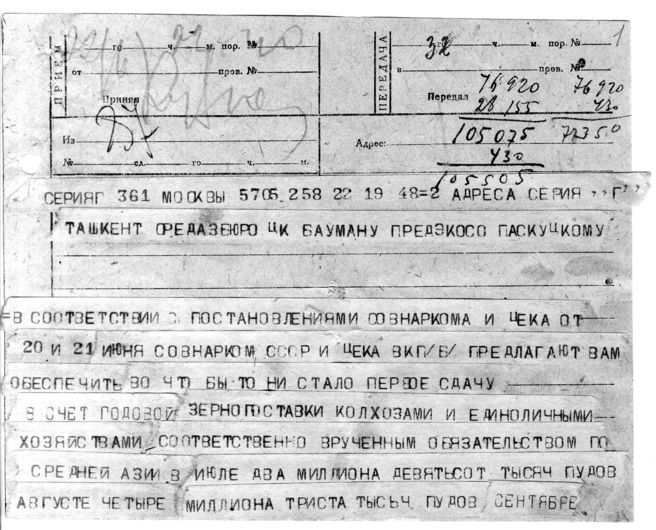 ПРИЕМ
го ч. м. пор. №
от пров. №
Принял
Из
№ сл. го ч. м.
ПЕРЕДАЧА
32 ч. м. пор. № 1
и пров. №
Передал
76920 76920
28155 430
Адрес: 105075 77350
430
105505
СЕРИЯГ 361 МОСКВЫ 5705 258 22 19 48=2 АДРЕСА СЕРИЯ ,,Г,,
ТАШКЕНТ СРЕДАЗБЮРО ЦК БАУМАНУ ПРЕДЭКОСО ПАСКУЦКОМУ
=В СООТВЕТСТВИИ С ПОСТАНОВЛЕНИЯМИ СОВНАРКОМА И ЦЕКА ОТ
20 И 21 ИЮНЯ СОВНАРКОМ СССР И ЦЕКА ВКП/Б/ ПРЕДЛАГАЮТ ВАМ
ОБЕСПЕЧИТЬ ВО ЧТО БЫ ТО НИ СТАЛО ПЕРВОЕ СДАЧУ
В СЧЕТ ГОДОВОЙ ЗЕРНОПОСТАВКИ КОЛХОЗАМИ И ЕДИНОЛИЧНЫМИ
ХОЗЯЙСТВАМИ СООТВЕТСТВЕННО ВРУЧЕННЫМ ОБЯЗАТЕЛЬСТВОМ ПО
СРЕДНЕЙ АЗИИ В ИЮЛЕ ДВА МИЛЛИОНА ДЕВЯТЬСОТ ТЫСЯЧ ПУДОВ
АВГУСТЕ ЧЕТЫРЕ МИЛЛИОНА ТРИСТА ТЫСЬЧ ПУДОВ СЕНТЯБРЕ